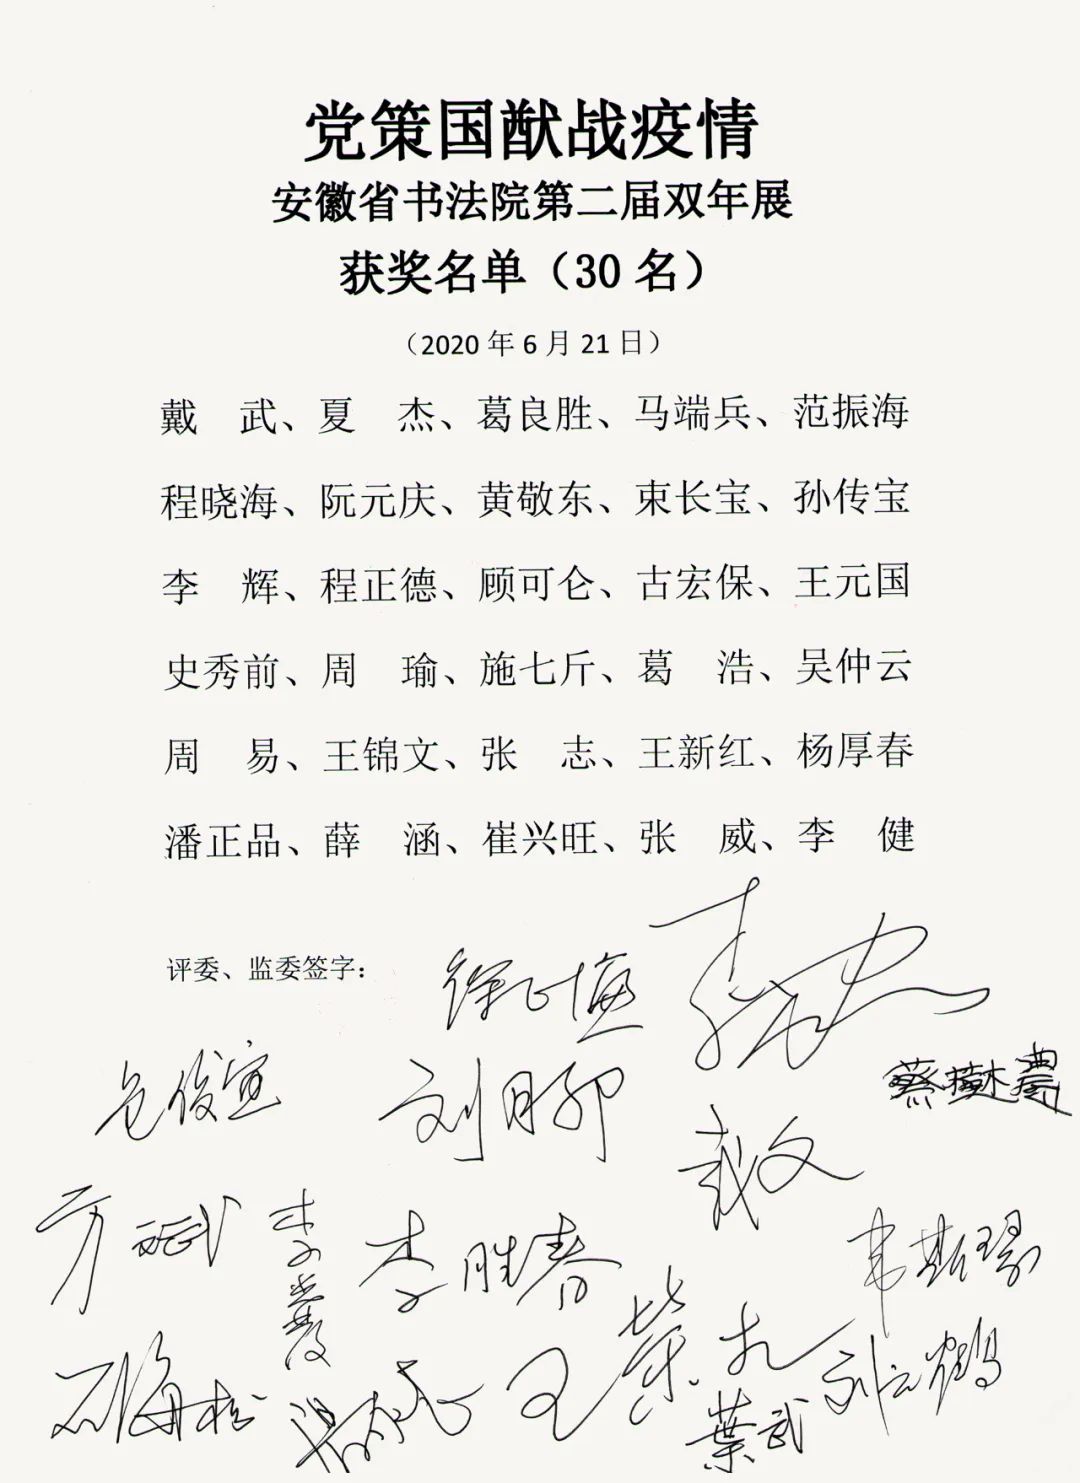 党策国猷战疫情
安徽省书法院第二届双年展
获奖名单（30 名）
（2020 年 6 月 21 日）
戴　武、夏　杰、葛良胜、马端兵、范振海
程晓海、阮元庆、黄敬东、束长宝、孙传宝
李　辉、程正德、顾可仑、古宏保、王元国
史秀前、周　瑜、施七斤、葛　浩、吴仲云
周　易、王锦文、张　志、王新红、杨厚春
潘正品、薛　涵、崔兴旺、张　威、李　健
评委、监委签字：
刘月卯
蔡樹農
方斌
李胜春
韦斯琴
刘云鹤
葉武